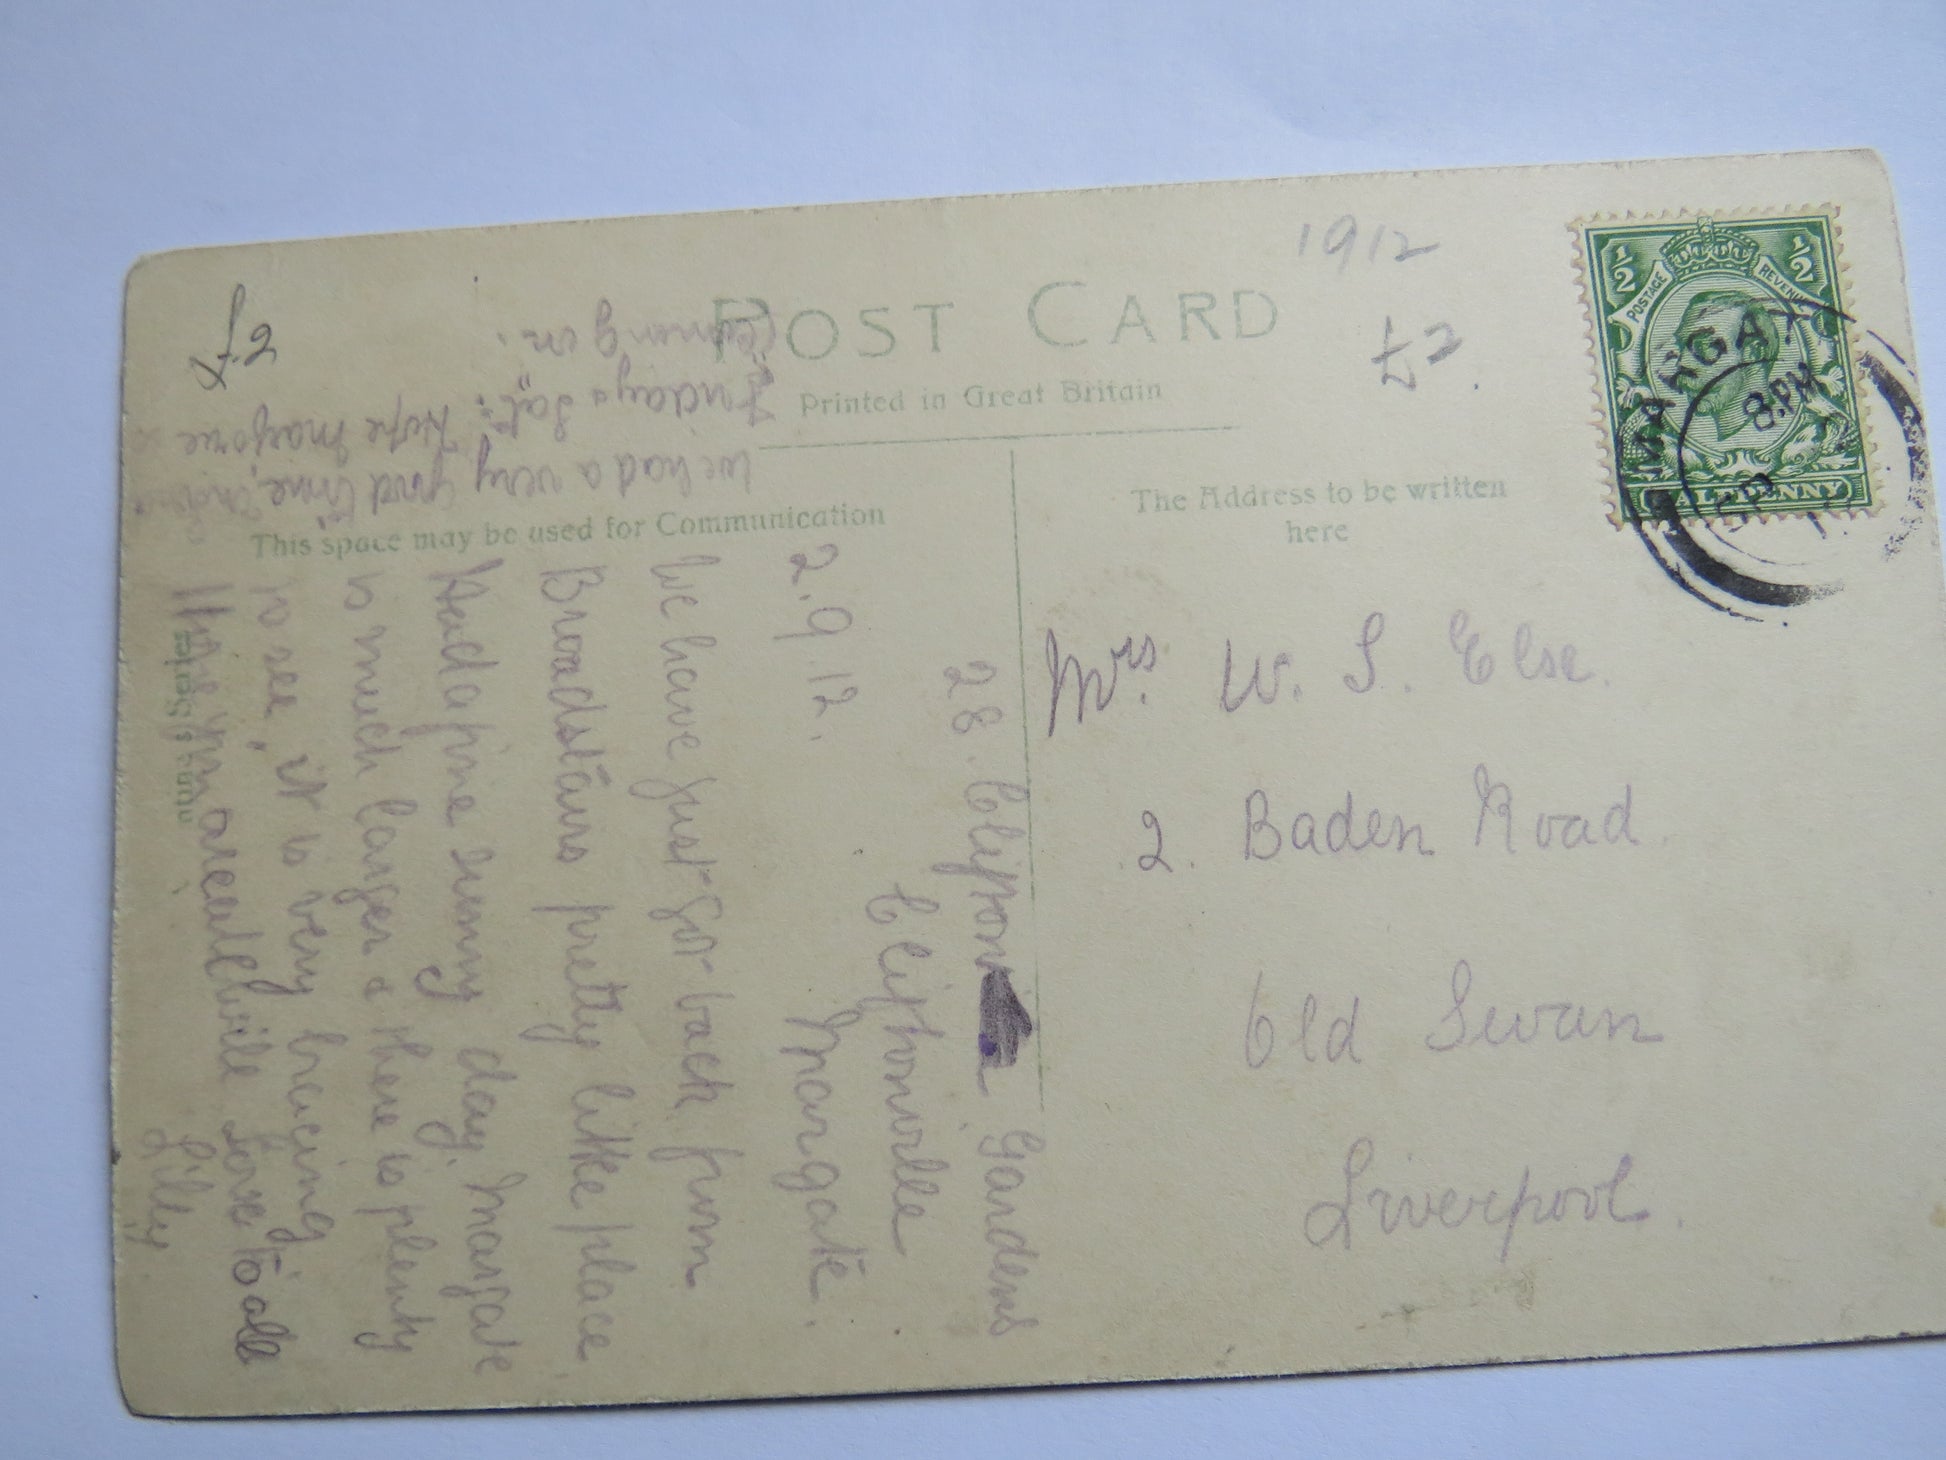 1912
£2
£2.
POST CARD
Printed in Great Britain
This space may be used for Communication
The Address to be written
here
½ ½
POSTAGE REVENUE
HALFPENNY
MARGATE
8.PM
Mrs. W. S. Else.
2. Baden Road
Old Swan
Liverpool.
28. Cliftonville Gardens
Cliftonville
Margate.
2.9.12.
We have just got back from
Broadstairs pretty little place.
Had a fine sunny day. Margate
is much larger & there is plenty
to see, it is very bracing
Hope you are all well Love to all
Lily
We had a very good time,
Friday & Sat: Hope Marjorie
coming on.
Series